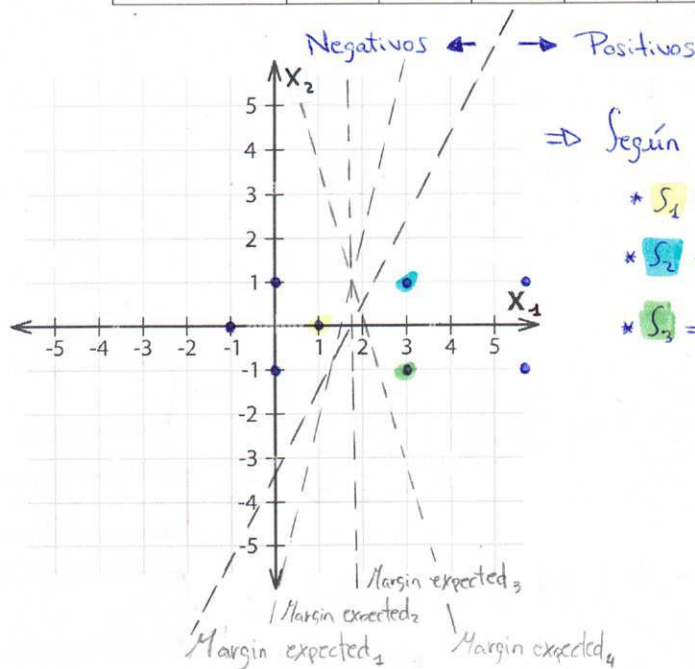 Negativos ← → Positivos
X₂
⇒ Según
* S₁
* S₂
* S₃ =
5
4
3
2
1
X₁
-5 -4 -3 -2 -1 1 2 3 4 5
-1
-2
-3
-4
-5
Margin expected₃
Margin expected₂
Margin expected₁
Margin expected₄